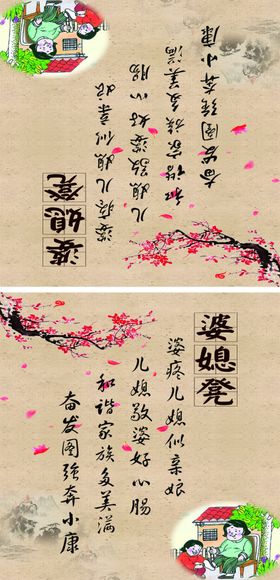 婆媳凳
婆疼儿媳似亲娘
儿媳敬婆好心肠
和谐家族多美满
奋发图强奔小康
婆媳凳
婆疼儿媳似亲娘
儿媳敬婆好心肠
和谐家族多美满
奋发图强奔小康